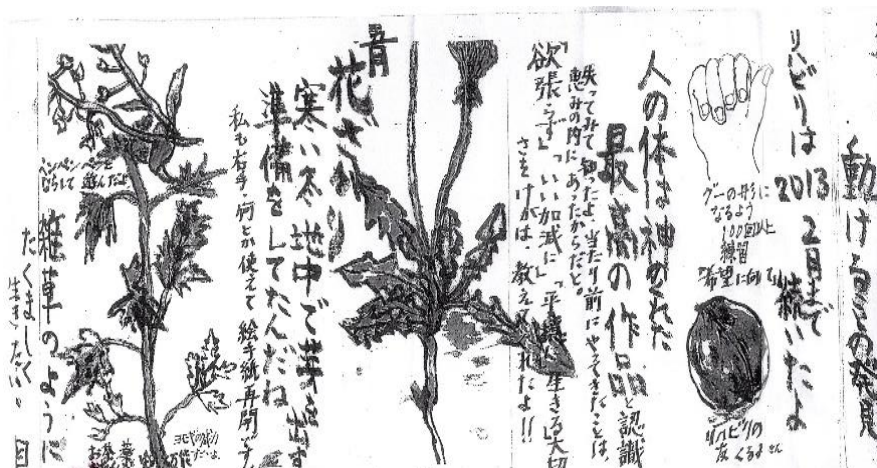 動けることの発見
リハビリは
2013 2月まで
続いたよ
グーの形に
なるよう
100回以上
練習
リハビリの
友 くるみさん
人の体は神のくれた
最高の作品と認識
失ってみて知ったよ、当たり前にやってきたことは、
恵みの内にあったからだと。
「欲張らず」「いい加減に」「平 に生きる」大切
さをけがは、教えてくれたよ!!
花ざかり
寒い冬 地中で芽を出す
準備をしてたんだね
私も右手、何とか使えて絵手紙再開です!
ならして 遊んだよ
雑草のように
たくましく
生きたい。目